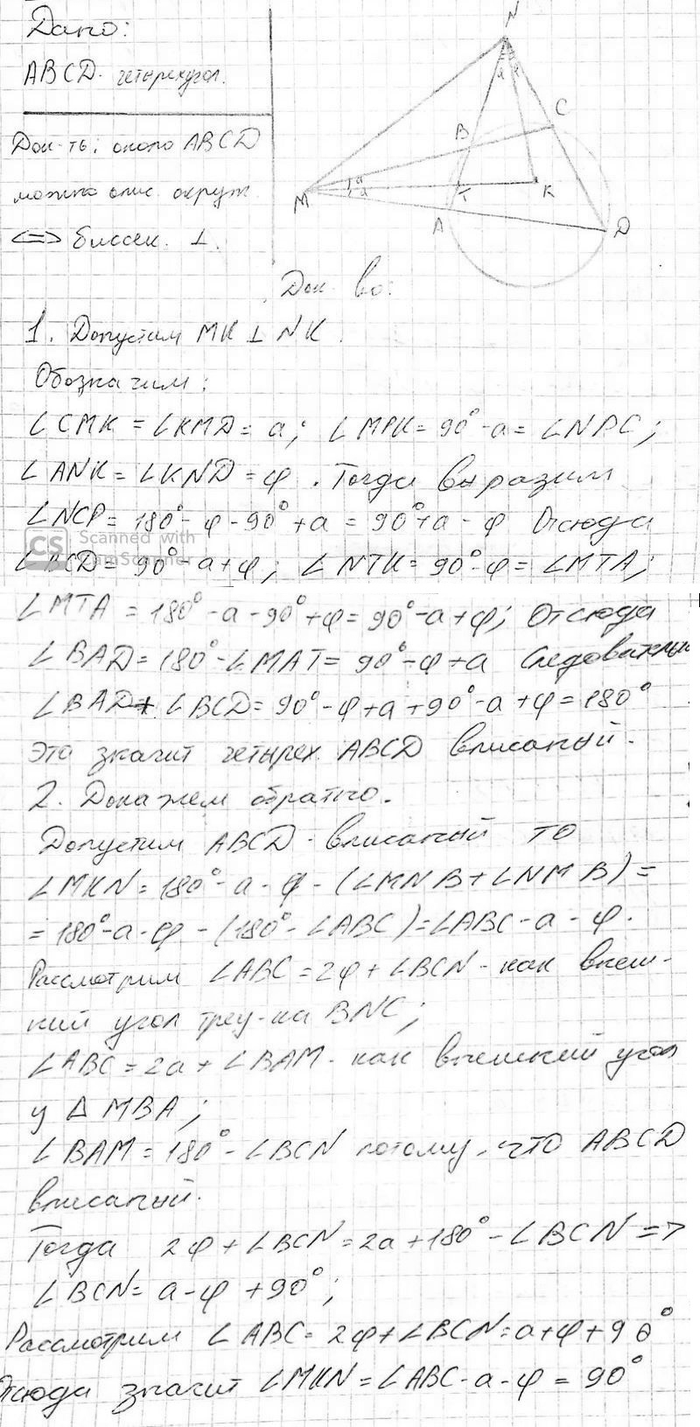 Дано:
ABCD- четырехугол.
Док-ть: около ABCD
можно опис. окруж.
<=> биссек. ⊥.
N
C
B
M
α
α
T
K
A
D
Док-во:
1. Допустим MK ⊥ NK.
Обозначим:
∠CMK = ∠KMD = a; ∠MPK = 90°-a = ∠NPC;
∠ANK = ∠KND = φ. Тогда выразим
∠NCP = 180° - φ - 90° + a = 90° + a - φ Отсюда
CS Scanned with CamScanner
∠BCD = 90° - a + φ; ∠NTK = 90° - φ = ∠MTA;
∠MTA = 180° - a - 90° + φ = 90° - a + φ; Отсюда
∠BAD = 180° - ∠MAT = 90° - φ + a Следовательно
∠BAD + ∠BCD = 90° - φ + a + 90° - a + φ = 180°
Это значит четырех. ABCD вписаный.
2. Докажем обратно.
Допустим ABCD - вписаный то
∠MKN = 180° - a - φ - (∠MNB + ∠NMB) =
= 180° - a - φ - (180° - ∠ABC) = ∠ABC - a - φ.
Рассмотрим ∠ABC = 2φ + ∠BCN - как внеш-
ний угол треу-ка BNC;
∠ABC = 2a + ∠BAM - как внешний угол
у Δ MBA;
∠BAM = 180° - ∠BCN потому, что ABCD
вписаный.
Тогда 2φ + ∠BCN = 2a + 180° - ∠BCN =>
∠BCN = a - φ + 90°;
Рассмотрим ∠ABC = 2φ + ∠BCN = a + φ + 90°
Отсюда значит ∠MKN = ∠ABC - a - φ = 90°